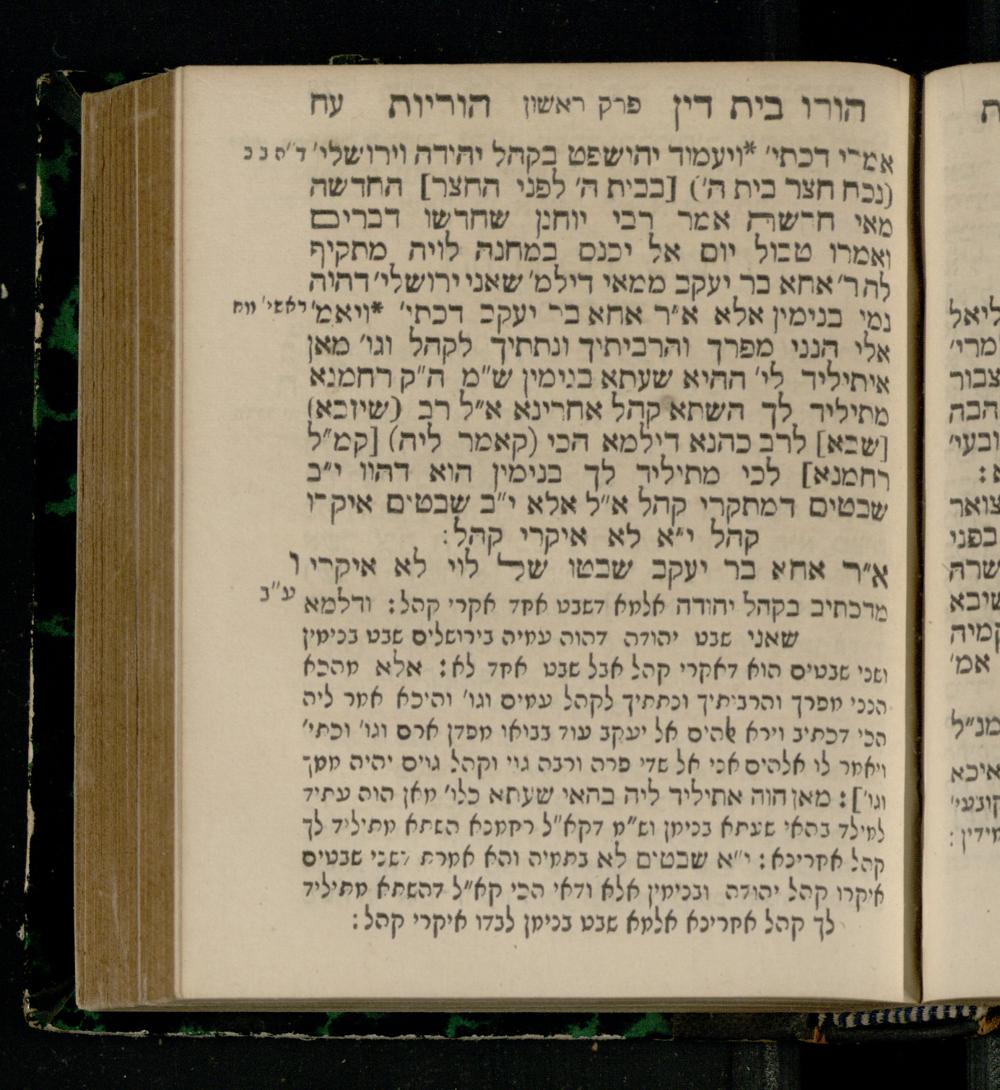 הורו בית דין פרק ראשון הוריות עח
אמרי דכתי' *ויעמוד יהושפט בקהל יהודה וירושלי' ד"ה ב כ
(נכח חצר בית ה') [בבית ה' לפני החצר] החדשה
מאי חדשה אמר רבי יוחנן שחדשו דברים
ואמרו טבול יום אל יכנס במחנה לויה מתקיף
לה ר' אחא בר יעקב ממאי דילמ' שאני ירושלי' דהוה
נמי בנימין אלא א"ר אחא בר יעקב דכתי' *ויאמ' ראשי' מח
אלי הנני מפרך והרביתיך ונתתיך לקהל וגו' מאן
איתיליד לי' ההיא שעתא בנימין ש"מ ה"ק רחמנא
מתיליד לך השתא קהל אחרינא א"ל רב (שיזבא)
[שבא] לרב כהנא דילמא הכי (קאמר ליה) [קמ"ל
רחמנא] לכי מתיליד לך בנימין הוא דהוו י"ב
שבטים דמתקרי קהל א"ל אלא י"ב שבטים איקרו
קהל י"א לא איקרי קהל:
א"ר אחא בר יעקב שבטו של לוי לא איקרי ו
ע"ב
מדכתיב בקהל יהודה אלמא דשבט אחד אקרי קהל: ודלמא
שאני שבט יהודה דהוה עמיה בירושלים שבט בנימין
ושני שבטים הוא דאקרי קהל אבל שבט אחד לא: אלא מהכא
הנני מפרך והרביתיך ונתתיך לקהל עמים וגו' והיכא אמר ליה
הכי דכתיב וירא אלהים אל יעקב עוד בבואו מפדן ארם וגו' וכתי'
ויאמר לו אלהים אני אל שדי פרה ורבה גוי וקהל גוים יהיה ממך
וגו']: מאן הוה אתיליד ליה בההיא שעתא כלו' מאן הוה עתיד
למילד בהאי שעתא בנימן וש"מ דקא"ל רחמנא השתא מתיליד לך
קהל אחרינא: י"א שבטים לא בתמיה והא אמרת דשני שבטים
איקרו קהל יהודה ובנימין אלא ודאי הכי קא"ל דהשתא מתיליד
לך קהל אחרינא אלמא שבט בנימן לבדו איקרי קהל:
ליאל
מרי'
צבור
הבה
ובעי'
א:
צואר
בפני
שרה
שיבא
קמיה
אמ'
מנ"ל
איכא
קובעי'
מידין: